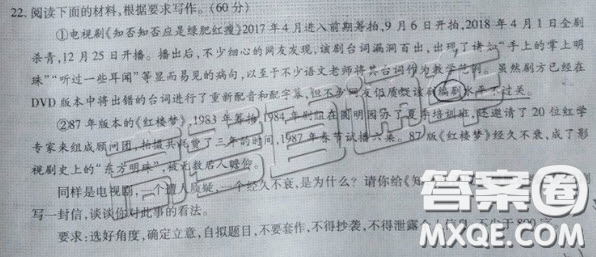 22. 阅读下面的材料,根据要求写作。(60分)
①电视剧《知否知否应是绿肥红瘦》2017年4月进入前期筹拍,9月6日开拍,2018年4月1日全剧
杀青,12月25日开播。播出后,不少细心的网友发现,该剧台词漏洞百出,出现了诸如"手上的掌上明
珠""听过一些耳闻"等显而易见的病句,以至于不少语文老师将其台词作为教学 虽然剧方已经在
DVD版本中将出错的台词进行了重新配音和配字幕,但不少网友仍 该剧编剧水平不过关。
②87年版本的《红楼梦》,1983年筹拍,1984年剧组在圆明园办了 培训班,还邀请了20位红学
专家来组成顾问团,拍摄共 了三年的时间,1987年春节试播六集。87版《红楼梦》经久不衰,成了影
视剧史上的"东方明珠",被无数后人
同样是电视剧,一个遭人质疑,一个经久不衰,是为什么?请你给《知
写一封信,谈谈你对此事的看法。
要求:选好角度,确定立意,自拟题目,不要套作,不得抄袭,不得泄露 不少于800
答案圈
MXQE.COM